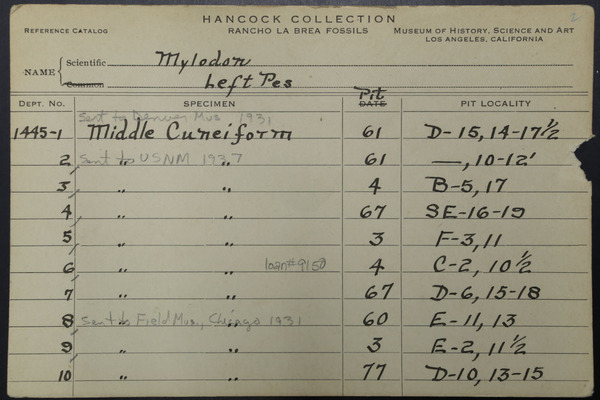 2
HANCOCK COLLECTION
REFERENCE CATALOG RANCHO LA BREA FOSSILS MUSEUM OF HISTORY, SCIENCE AND ART
LOS ANGELES, CALIFORNIA
NAME { Scientific Mylodon
Common Left Pes
Pit
DEPT. NO. SPECIMEN DATE PIT LOCALITY
Sent to Denver Mus 1931
1445-1 Middle Cuneiform 61 D-15, 14-17½
2 Sent to USNM 1937 " " 61 —, 10-12'
3 " " 4 B-5, 17
4 " " 67 SE-16-19
5 " " 3 F-3, 11
6 " " loan#9150 4 C-2, 10½
7 " " 67 D-6, 15-18
8 Sent to Field Mus., Chicago 1931 " " 60 E-11, 13
9 " " 3 E-2, 11½
10 " " 77 D-10, 13-15